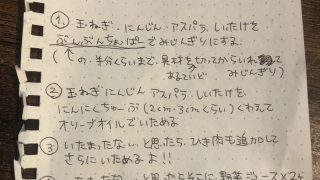 ① 玉ねぎ、にんじん、アスパラ、しいたけを
ぶんぶんちょっぱーでみじんぎりにする。
(↑の半分くらいまで、具材を切ってからいれて
あるていど みじんぎり)
② 玉ねぎ にんじん アスパラ しいたけを、
にんにくちゅーぶ(2cm-3cmくらい)くわえて
オリーブオイルでいためる
③ いたまったな…と思ったら、ひき肉も追加して
さらにいためるよ!!
と思ったらそこに野菜ジュース×2ヶ